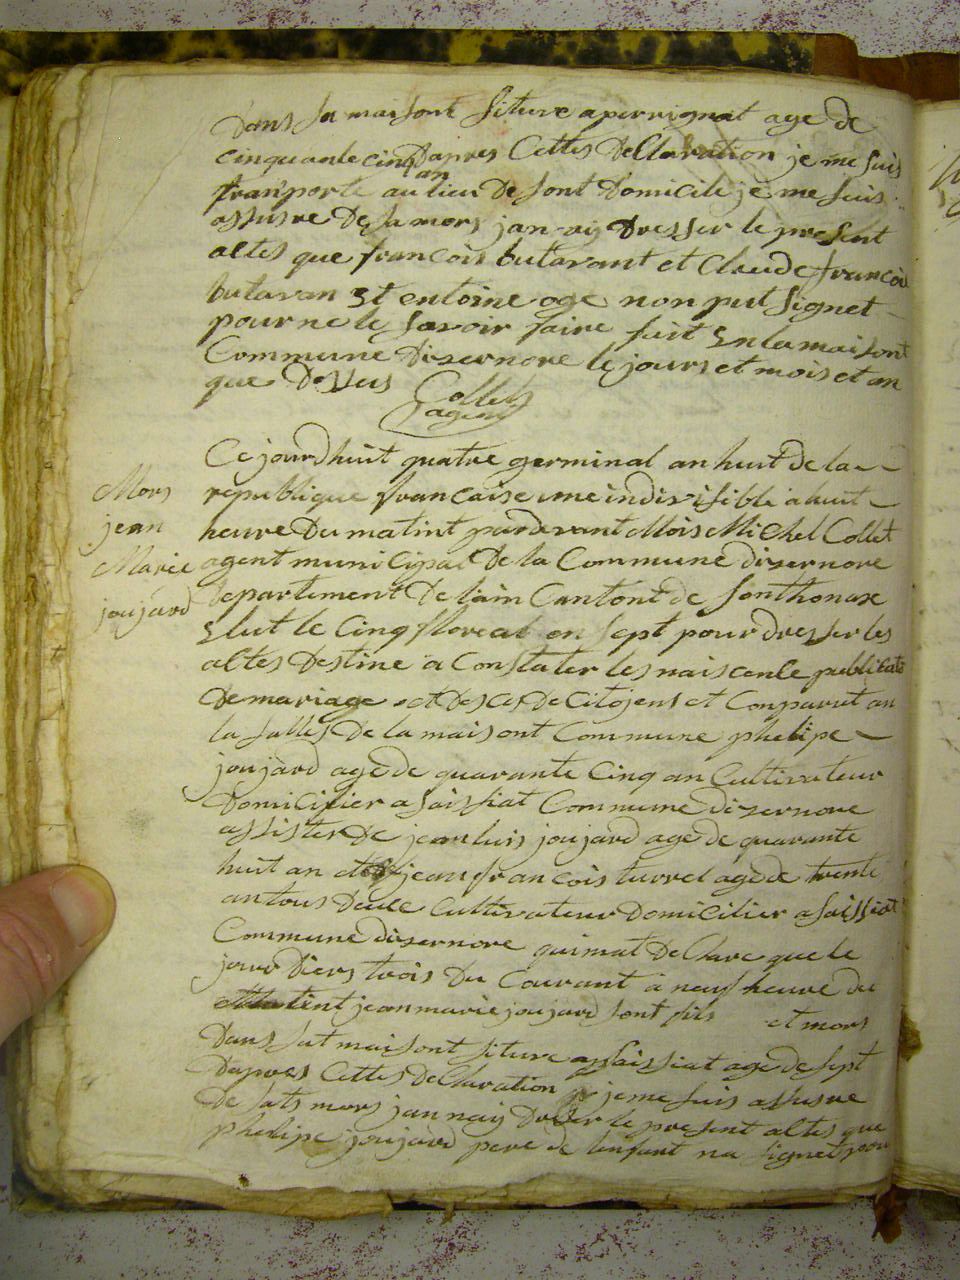 Dans sa maisont siture a perrignat age de
cinquante cinq an Dapres Cettes DeClaration je me suis
tranporte au lieu De sont Domicile je me suis
assusre De sa mors jan nay Dresser le present
altes que francois butavant et Claude francois
butavan Et entoine oge non put signet
pour ne le savoir faire fait En la maisont
Commune disernore le jours et mois et an
que Dessus Collet
agent
Ce jourdhuit quatre germinal an huit de la
republique francaise une indivisible a huit
heure Du matint pardevant Mois Michel Collet
agent municipal De la Commune disernore
departement De lain Cantont de sonthonax
Elut le Cinq floreal an sept pour dresser les
altes Destine a Constater les naiscence publicate
De mariage et Desces De Citojens et Comparut an
la salles De la maisont Commune phelipe
joujard age de quarante Cinq an Cultivateur
Domicilier a saissiat Commune disernore
assister De jean luis joujard age de quarante
huit an et jean francois turrel age de trente
an tous Deux Cultivateur Domicilier a saissiat
Commune disernore qui mat DeClare que le
jour Diers trois Du Courant a neuf heure du
jean marie joujard sont fils et mors
Dans sat maisont siture a saissiat age de sept
Dapres Cettes DeClaration je me suis assusre
De sats mors jan nay Dresser le present altes que
phelipe joujard pere de lenfant na signet pour
Mors
jean
Marie
joujard